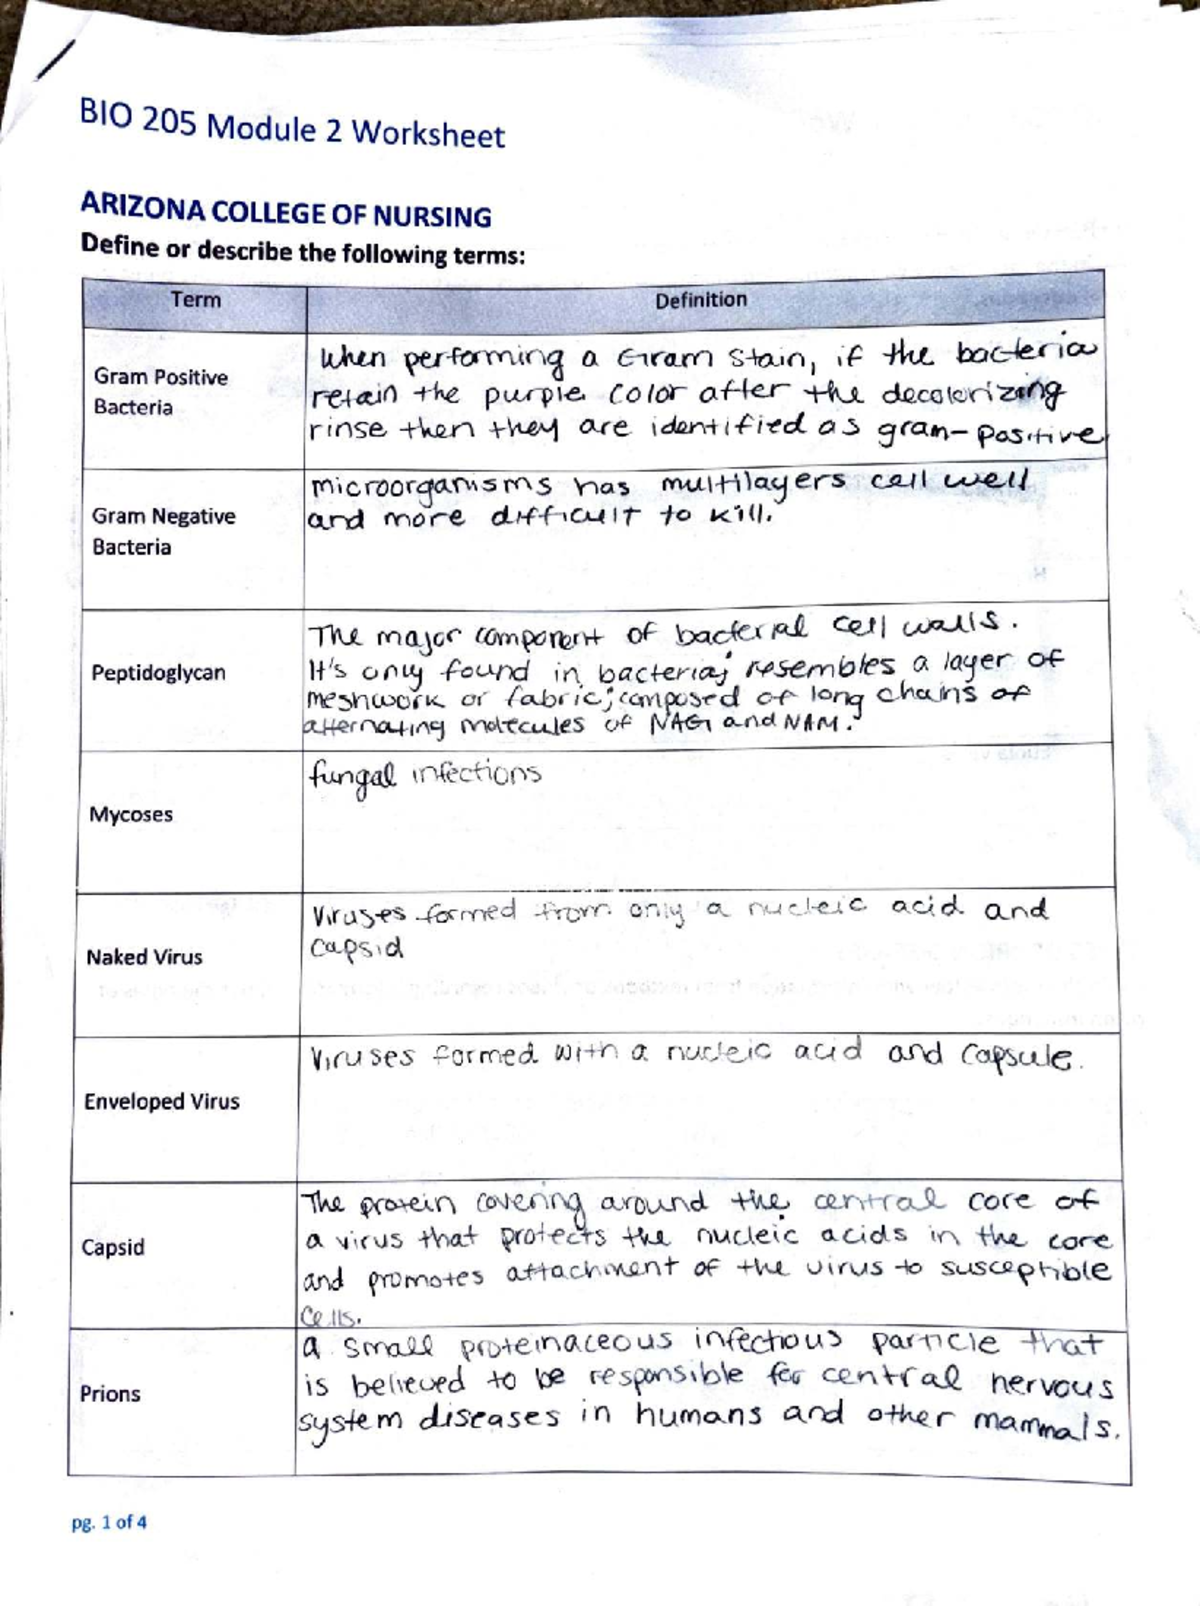 BIO 205 Module 2 Worksheet
ARIZONA COLLEGE OF NURSING
Define or describe the following terms:
Term
Definition
Gram Positive
Bacteria
When performing a Gram Stain, if the bacteria
retain the purple color after the decolorizing
rinse then they are identified as gram-positive
Gram Negative
Bacteria
microorganisms has multilayers cell well
and more difficult to kill.
Peptidoglycan
The major component of bacterial cell walls.
It's only found in bacteria; resembles a layer of
meshwork or fabric; composed of long chains of
alternating molecules of NAG and NAM.
Mycoses
fungal infections
Naked Virus
Viruses formed from only a nucleic acid and
capsid
Enveloped Virus
Viruses formed with a nucleic acid and capsule.
Capsid
The protein covering around the central core of
a virus that protects the nucleic acids in the core
and promotes attachment of the virus to susceptible
cells.
Prions
a small proteinaceous infectious particle that
is believed to be responsible for central nervous
system diseases in humans and other mammals.
pg. 1 of 4